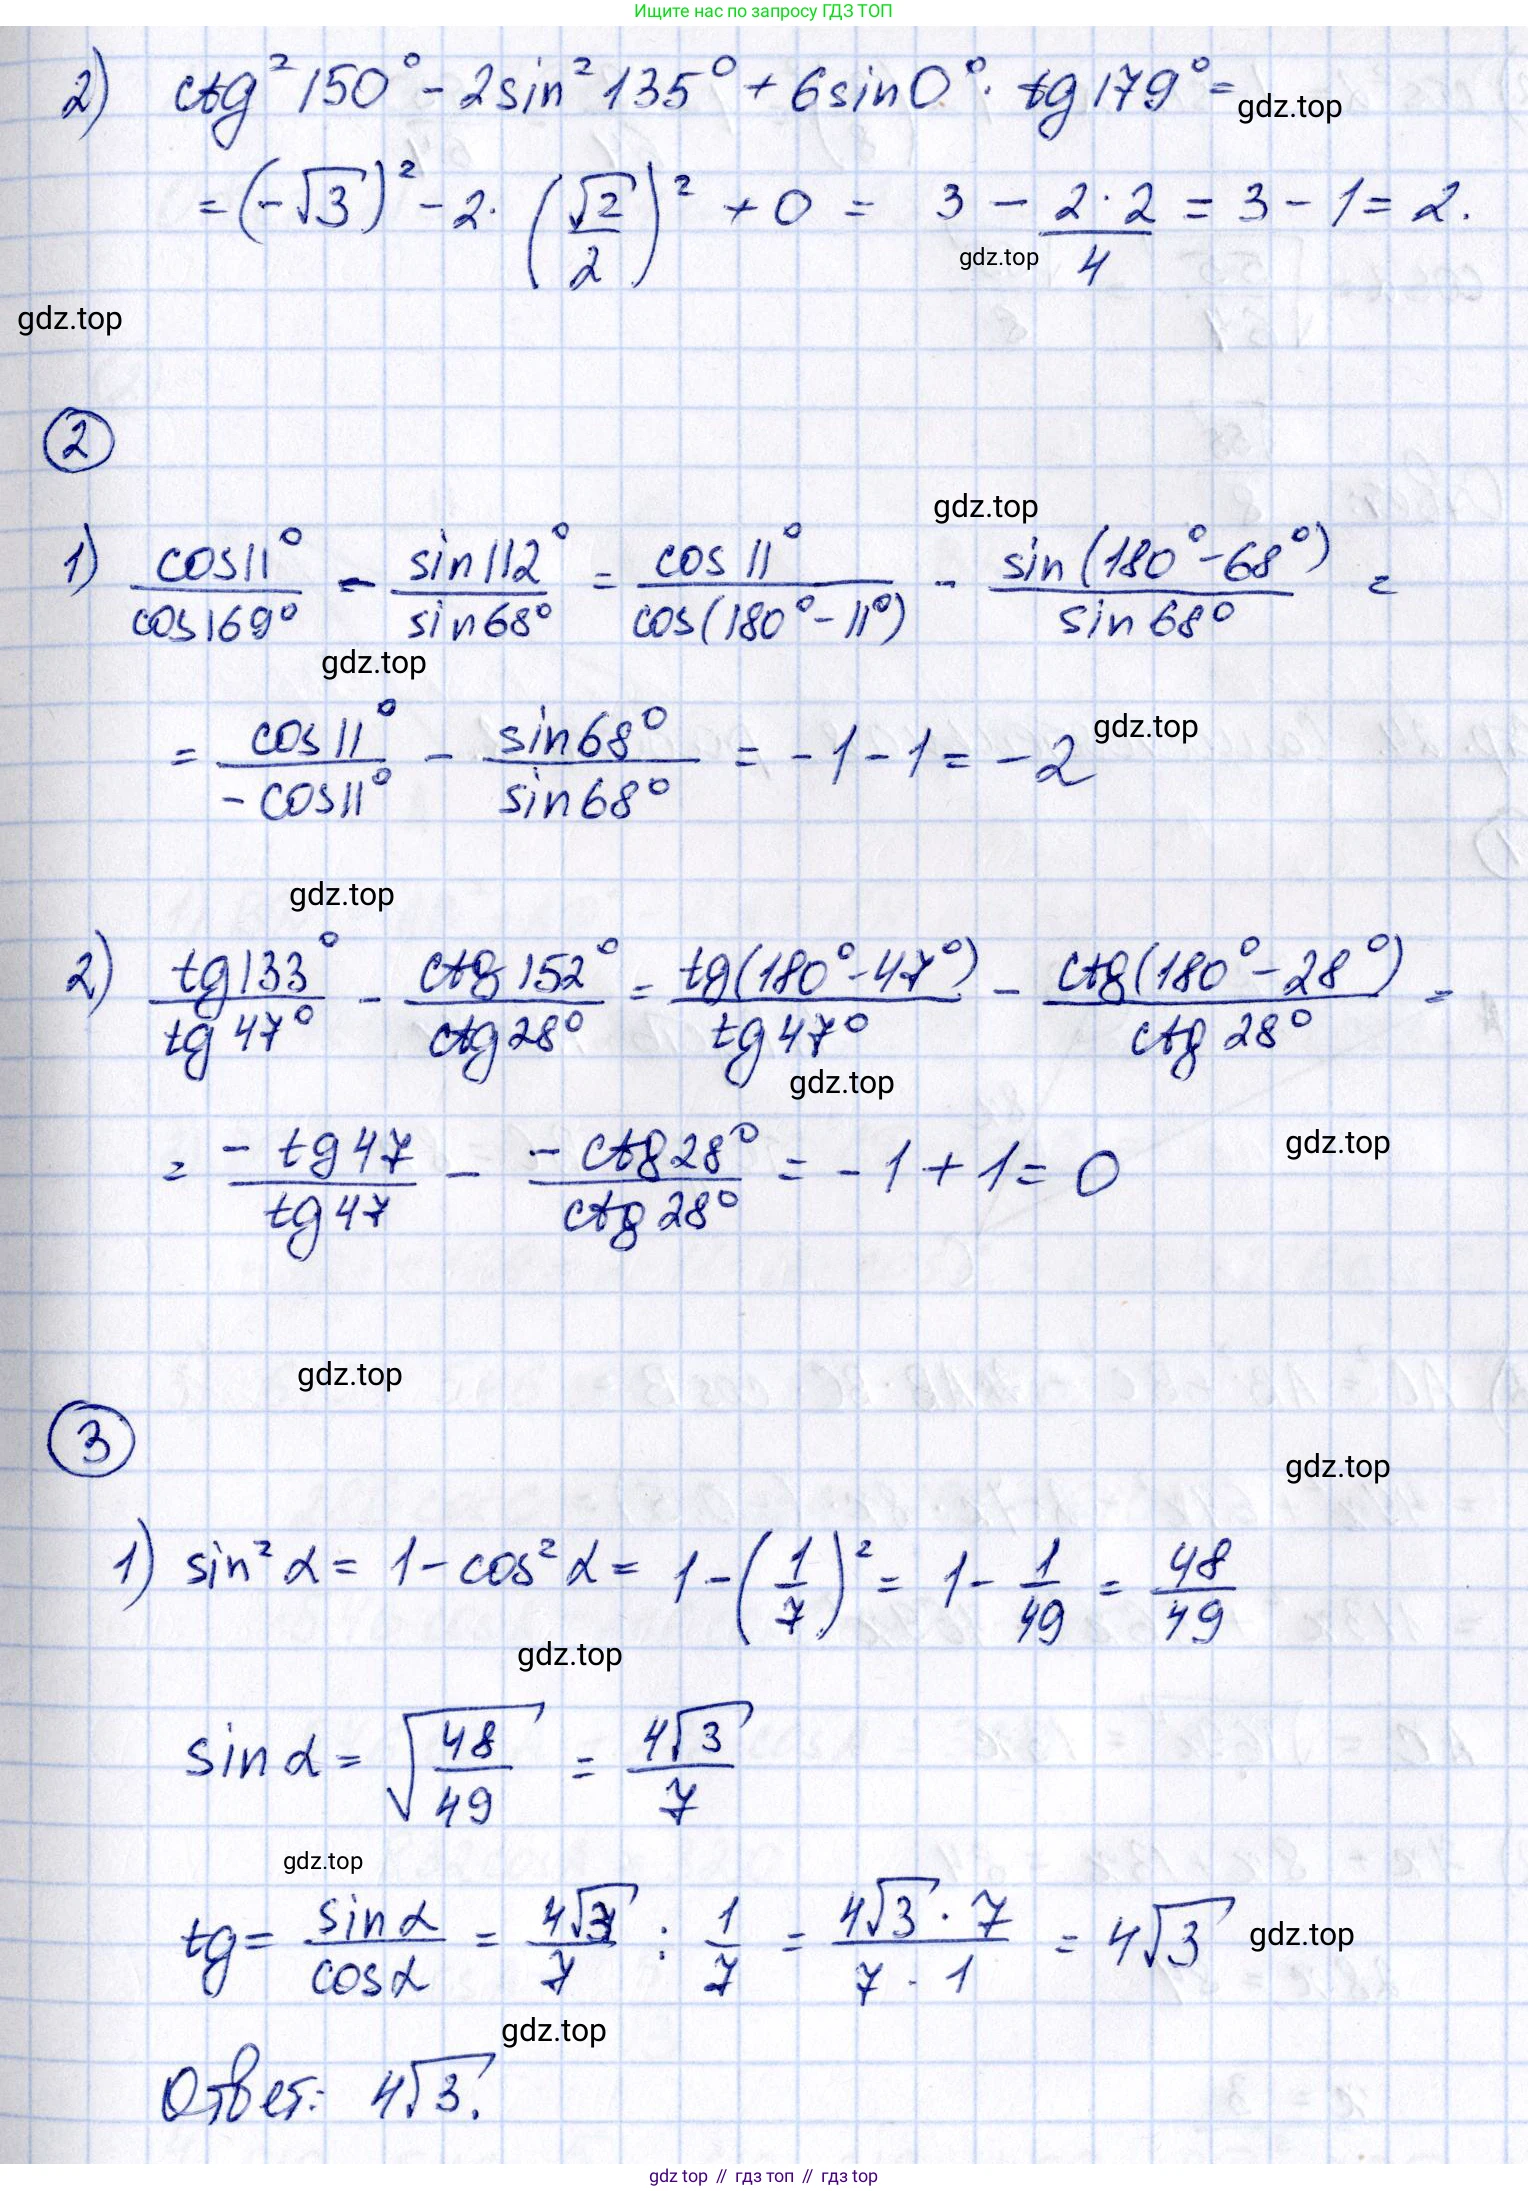 Ищите нас по запросу ГДЗ ТОП
2) ctg² 150° - 2sin² 135° + 6sin0° · tg 179° =
gdz.top
= (-√3)² - 2 · (√2/2)² + 0 = 3 - (2 · 2)/4 = 3 - 1 = 2.
gdz.top
gdz.top
2
gdz.top
1) cos11°/cos169° - sin112°/sin68° = cos11°/cos(180° - 11°) - sin(180° - 68°)/sin68° =
gdz.top
= cos11°/-cos11° - sin68°/sin68° = -1 - 1 = -2
gdz.top
gdz.top
2) tg133°/tg47° - ctg152°/ctg28° = tg(180° - 47°)/tg47° - ctg(180° - 28°)/ctg28° =
gdz.top
= -tg47/tg47 - -ctg28°/ctg28° = -1 + 1 = 0
gdz.top
gdz.top
3
gdz.top
1) sin² α = 1 - cos² α = 1 - (1/7)² = 1 - 1/49 = 48/49
gdz.top
sin α = √(48/49) = 4√3/7
gdz.top
tg = sin α/cos α = 4√3/7 : 1/7 = (4√3 · 7)/(7 · 1) = 4√3
gdz.top
gdz.top
Ответ: 4√3.
gdz top // гдз топ // гдз top